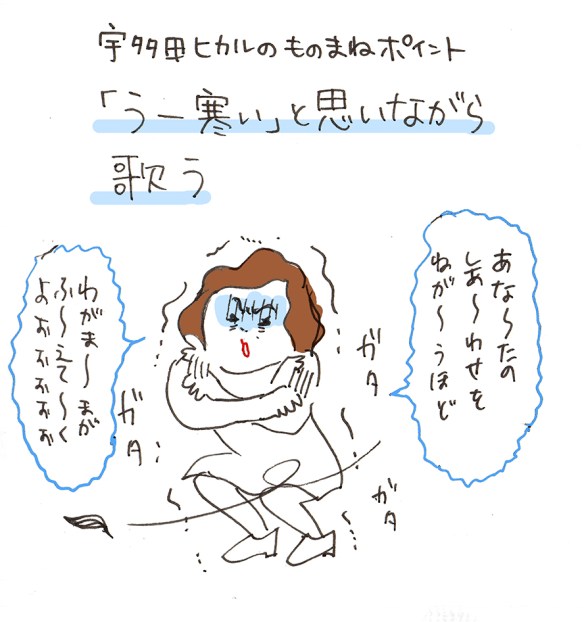 宇多田ヒカルのものまねポイント
「うー寒い」と思いながら
歌う
あな〜たの
しあ〜わせを
ねが〜うほど
わがま〜まが
ふ〜えて〜く
よぉぉぉぉぉ
ガタ
ガタ
ガタ